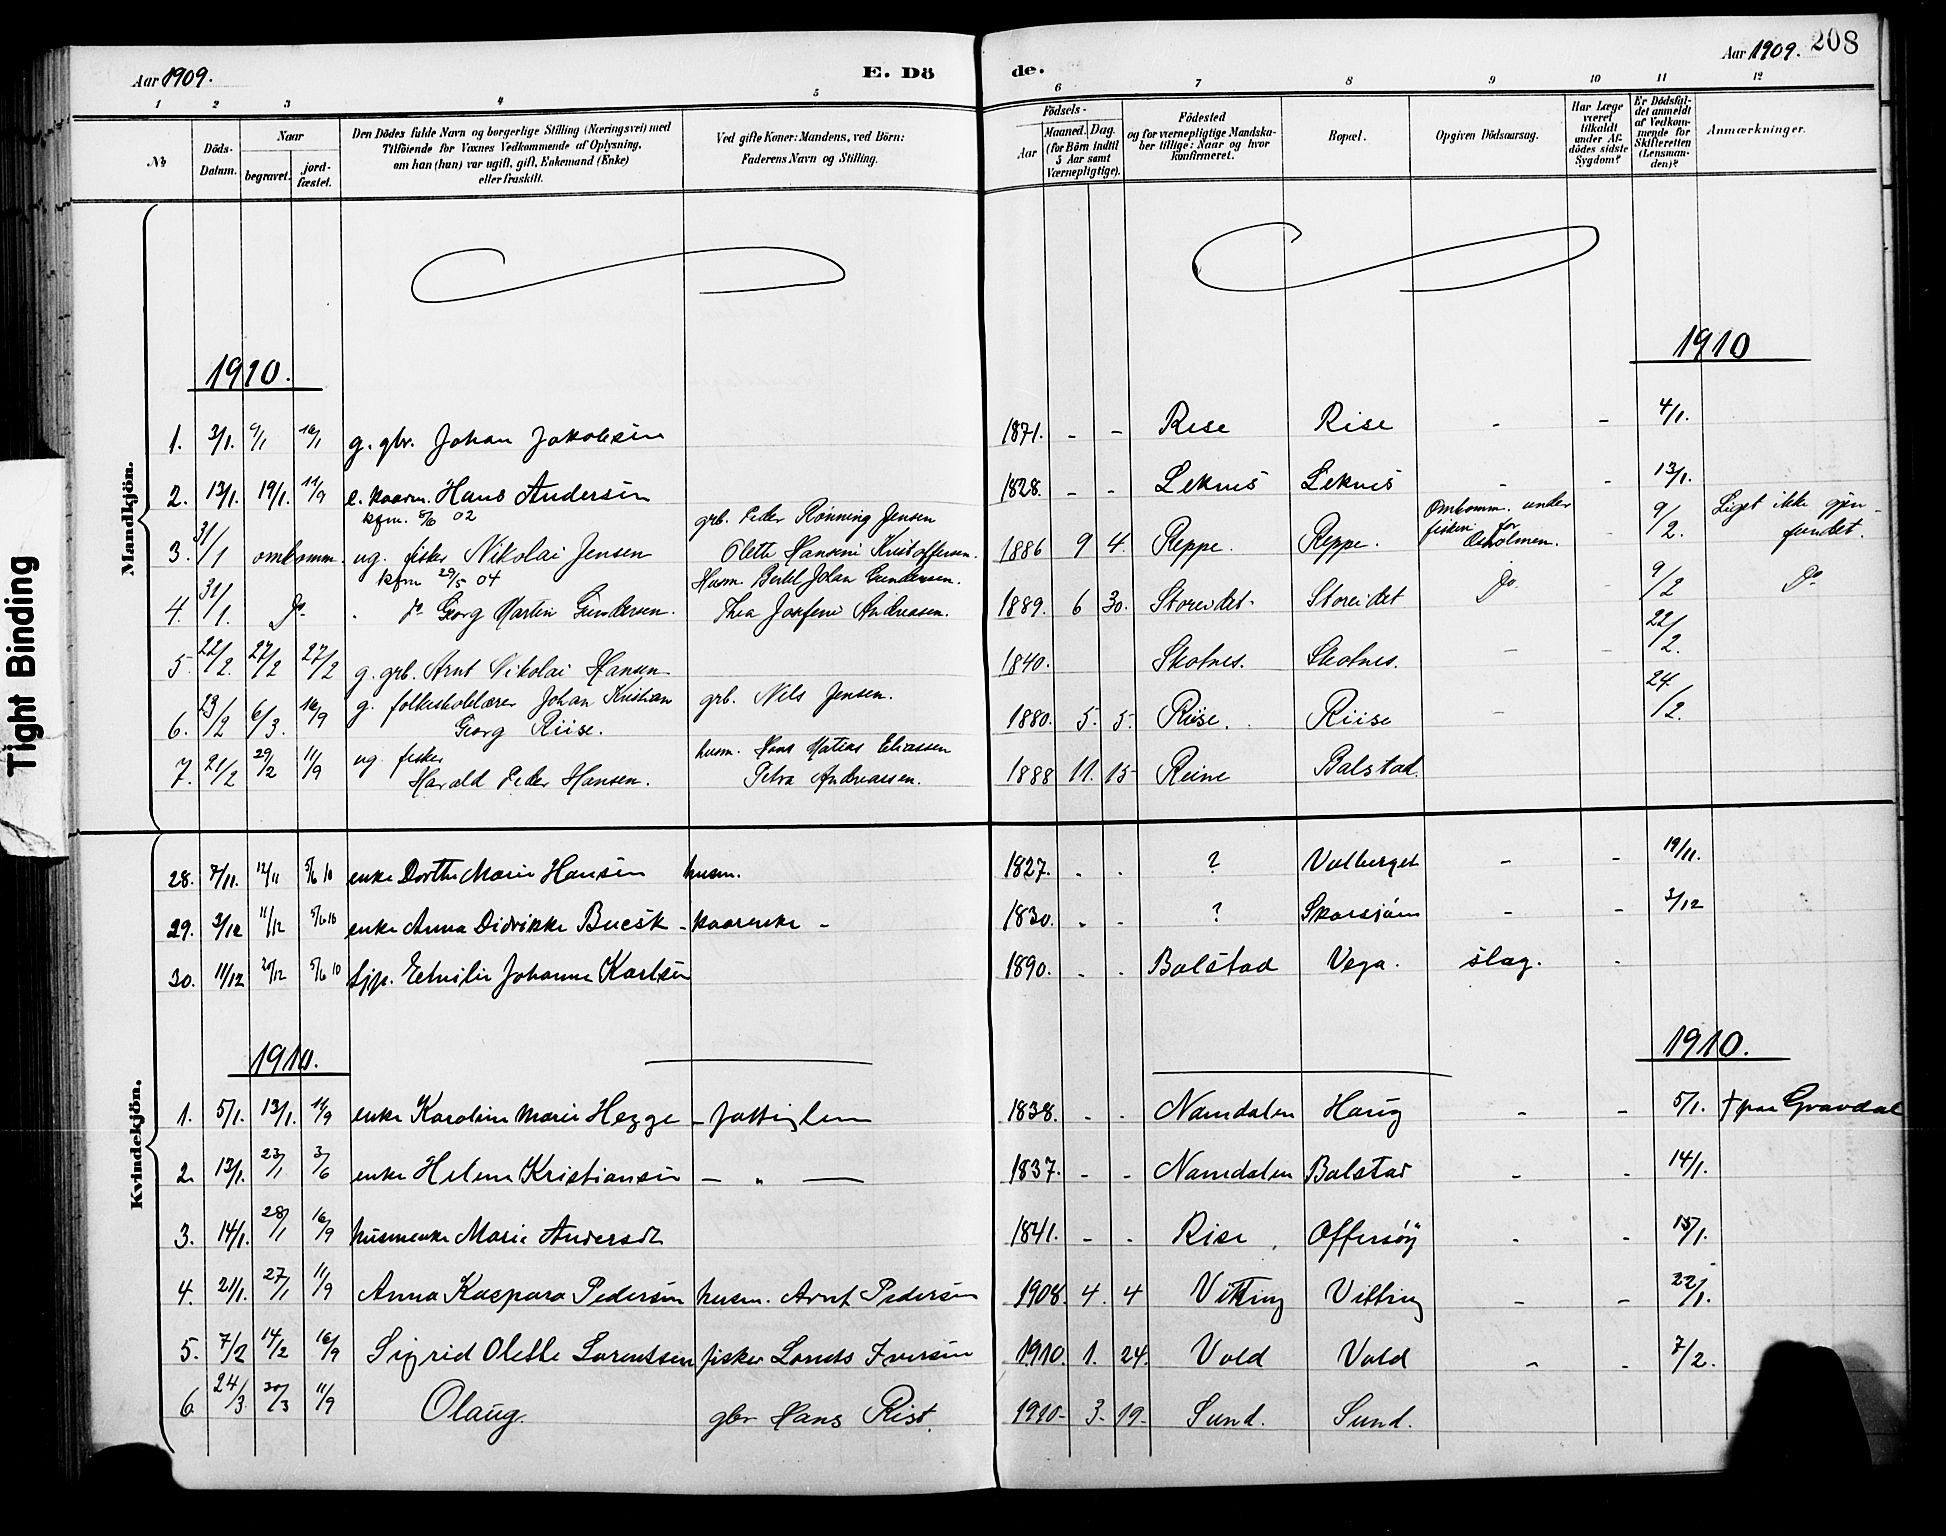 Aar 1909. E. Dö de. Aar 1909. 208
1 2 3 4 5 6 7 8 9 10 11 12
№ Döds-Datum. Naar begravet. jord-fæstet. Den Dödes fulde Navn og borgerlige Stilling (Næringsvei) med Tilföiende for Voxnes Vedkommende af Oplysning, om han (hun) var ugift, gift, Enkemand (Enke) eller fraskilt. Ved gifte Koner: Mandens, ved Börn: Faderens Navn og Stilling. Födsels- Aar Maaned. Dag. (for Börn indtil 5 Aar samt Værnepligtige). Födested og for værnepligtige Mandskaber tillige: Naar og hvor konfirmeret. Bopæl. Opgiven Dödsaarsag. Har Læge været tilkaldt under Afdödes sidste Sygdom? Er Dödsfaldet anmeldt af Vedkommende for Skifteretten (Lensmanden)? Anmærkninger.
Tight Binding
Mandkjön.
1910. 1910
1. 3/1. 9/1 16/1 g. gbr. Johan Jakobsen 1871. - - Rise Rise - - 4/1.
2. 13/1. 19/1. 11/9 e. kaarm. Hans Andersen 1828. - - Leknes Leknes - - 13/1.
kfm. 5/6 02 grb. Peder Rönning Jensen Omkomm. under
3. 31/1 omkomm. ug. fisker Nikolai Jensen Olette Hansine Kristoffersen. 1886 9 4. Reppe. Reppe. fiskeri for - 9/2. Liget ikke gjenfundet.
kfm 29/5 04 Husm. Bertel Johan Gundersen.
4. 31/1. Do. " do Georg Martin Gundersen. Thea Josefine Andreasen. 1889. 6 30. Storeidet. Storeidet Do. - 9/2 Do
5 22/2. 27/2 27/2 g. grb. Arnt Nikolai Hansen 1840. Skotnes. Skotnes. - - 22/2.
6. 23/2 6/3. 16/9 g. folkeskolelærer Johan Kristian grb. Nils Jensen. 1880. 5. 5. Riise. Riise - 24/2.
Georg Riise.
7. 21/2 29/2 11/9 ug. fisker husm. Hans Matias Eliassen
Harald Peder Hansen. Petra Andreassen. 1888 11. 15 Reine Balstad.
Kvindekjön.
28. 7/11. 12/11 5/6 10 enke Dorthe Marie Hansen husm. 1827. - - ? Valberget - - 19/11.
29. 3/12 11/12 5/6 10 enke Anna Didrikke Buesk - kaarenke - 1830. - - ? Skarsjöen - - 3/12
30. 11/12 20/12 5/6 10 tjp. Emilie Johanne Karlsen 1890. - - Balstad Vega. slag. -
1910. 1910.
1. 5/1. 13/1. 11/9 enke Karoline Marie Hegge - fattiglem 1838. - - Namdalen Haug - - 5/1. † paa Gravdal
2. 13/1. 23/1 3/6 enke Helene Kristiansen - " - 1837. - - Namdalen Balstad - - 14/1.
3. 14/1. 28/1 16/9 husmenke Marie Andersdt 1841. - - Rise Offersöy - - 15/1.
4. 21/1. 27/1 11/9 Anna Kaspara Pedersen husm. Arnt Pedersen 1908. 4. 4 Vitting Vitting - - 22/1.
5. 7/2 14/2 16/9 Sigrid Olette Lorentsen fisker Iversen 1910. 1. 24. Vold Vold - - 7/2.
6. 24/3. 30/3 11/9 Olaug. gbr Hans Rist. 1910. 3. 19. Sund. Sund.